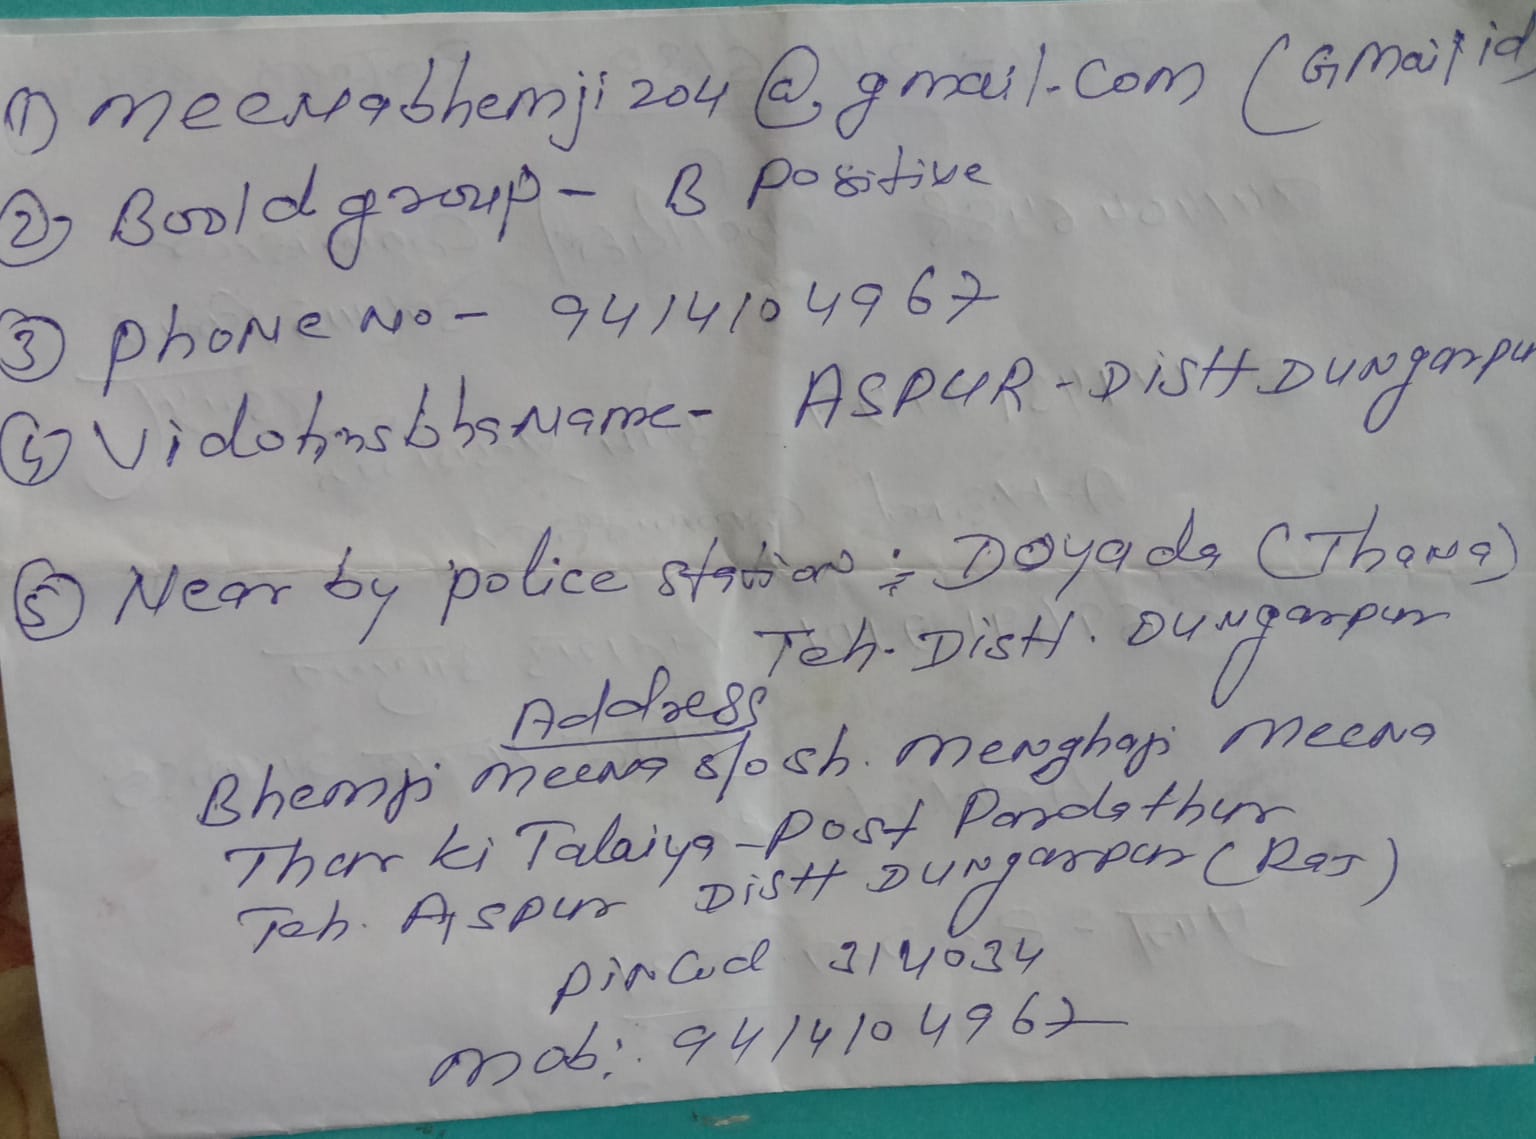 ① meenabhemji204@gmail.com (Gmail id)
②Boold group - B Positive
③ Phone No - 9414104967
④ Vidohnsbha Name - ASPUR - Distt Dungarpur
⑤ Near by police station :- Doyada (Thana)
Teh. Distt. Dungarpur
Address
Bhemji meena s/o sh. menghaji meena
Thar ki Talaiya - Post Pardathur
Teh. Aspur Distt Dungarpur (Raj)
Pin Cod 314034
mob:. 9414104967